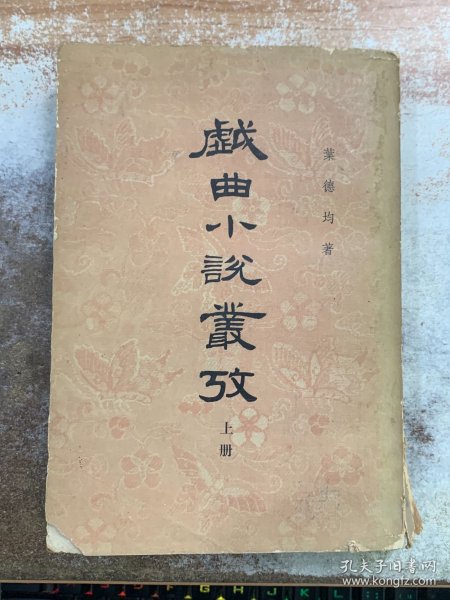 戲曲小說叢攷
上册
葉德均著
孔夫子旧书网